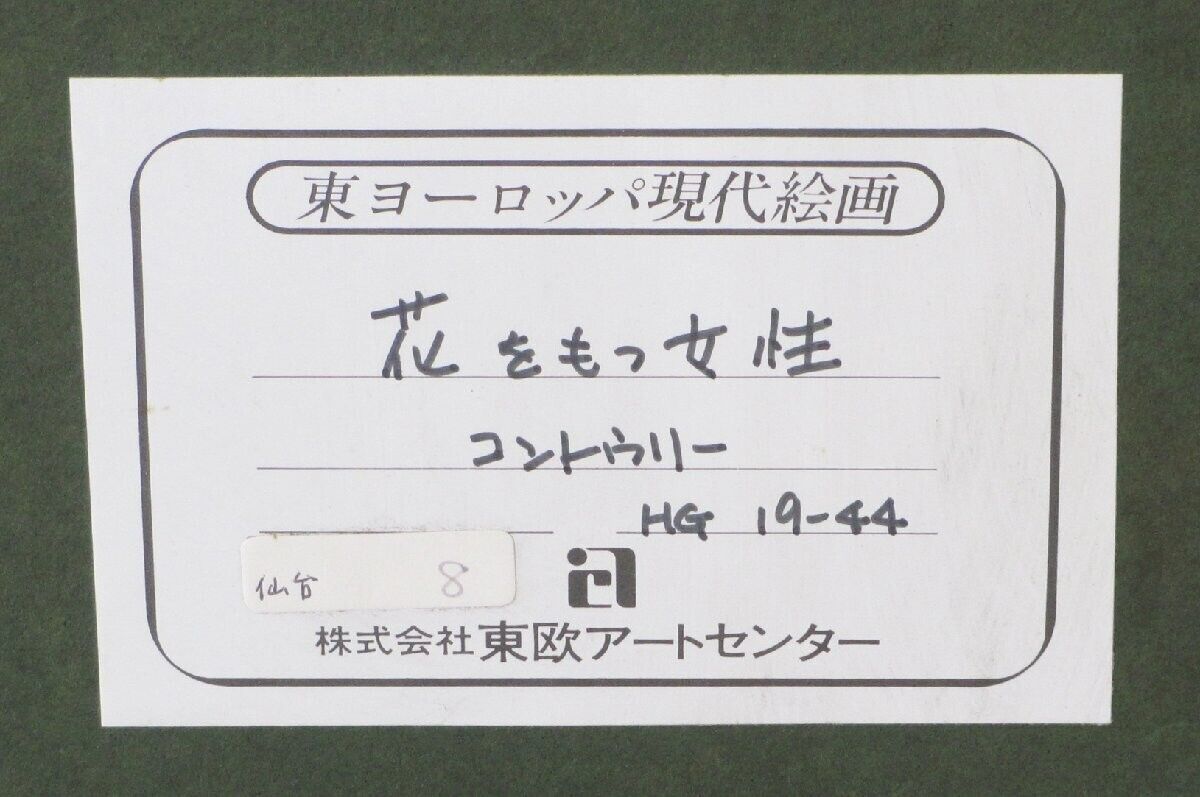 東ヨーロッパ現代絵画
花をもつ女性
コントゥリー
HG 19-44
仙台 8
株式会社 東欧アートセンター